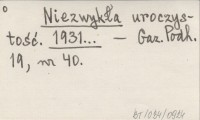 Niezwykła uroczys-
tość. 1931... — Gaz. Podh.
19, nr 40.
bt/084/0984